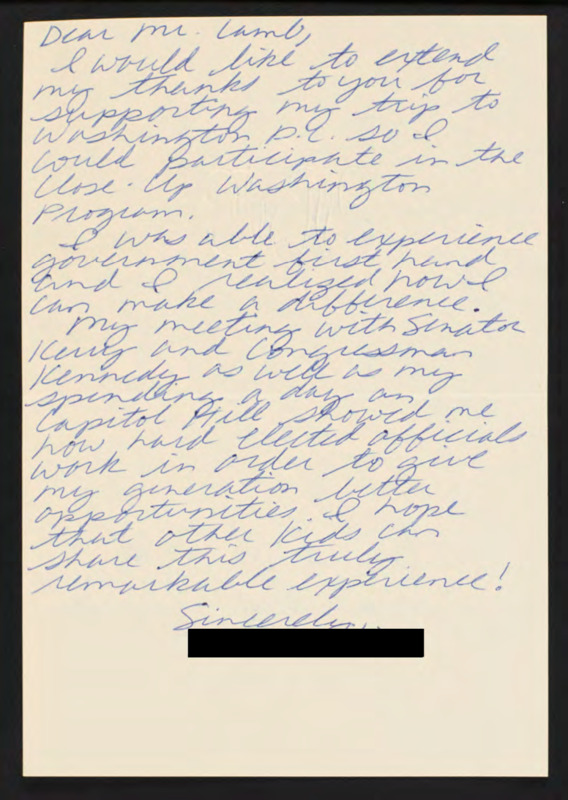 Dear Mr. Lamb,
I would like to extend
my thanks to you for
supporting my trip to
Washington D.C. so I
could participate in the
Close-Up Washington
Program.
I was able to experience
government first hand
and I realized how I
can make a difference.
My meeting with Senator
Kerry and Congressman
Kennedy as well as my
spending a day on
Capitol Hill showed me
how hard elected officials
work in order to give
my generation better
opportunities. I hope
that other kids can
share this truly
remarkable experience!
Sincerely,